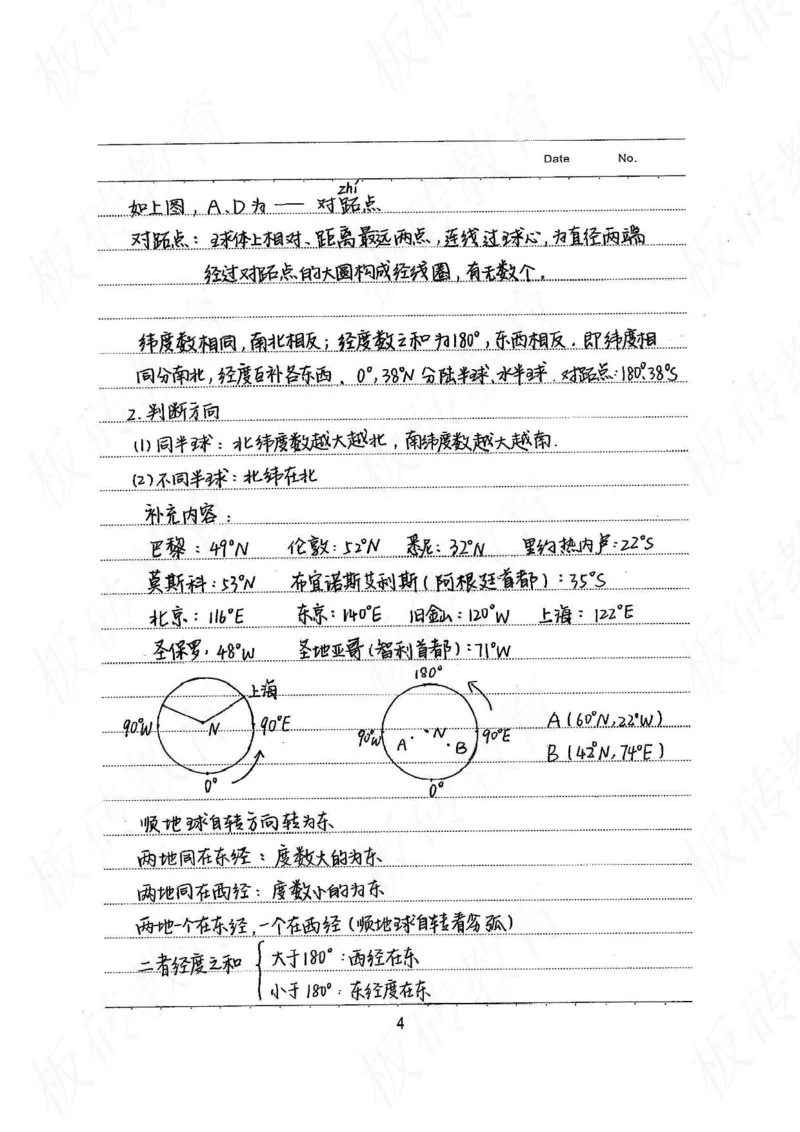 Date No.
zhí
如上图，A、D为 —— 对跖点
对跖点：球体上相对、距离最远两点，连线过球心，为直径两端
经过对跖点的大圆构成经线圈，有无数个。
纬度数相同，南北相反；经度数之和为180°，东西相反．即纬度相
同分南北，经度互补各东西． 0°，38°N 分陆半球、水半球．对跖点：180°，38°S
2.判断方向
(1)同半球：北纬度数越大越北，南纬度数越大越南．
(2)不同半球：北纬在北
补充内容：
巴黎：49°N 伦敦：52°N 悉尼：32°N 里约热内卢：22°S
莫斯科：53°N 布宜诺斯艾利斯（阿根廷首都）：35°S
北京：116°E 东京：140°E 旧金山：120°W 上海：122°E
圣保罗，48°W 圣地亚哥（智利首都）：71°W
上海
90°W N 90°E
0°
180°
90°W A N B 90°E
0°
A（60°N，22°W）
B（42°N，74°E）
顺地球自转方向转为东
两地同在东经：度数大的为东
两地同在西经：度数小的为东
两地一个在东经，一个在西经（顺地球自转看劣弧）
二者经度之和 大于180°：西经在东
小于180°：东经度在东
4
板砖教育